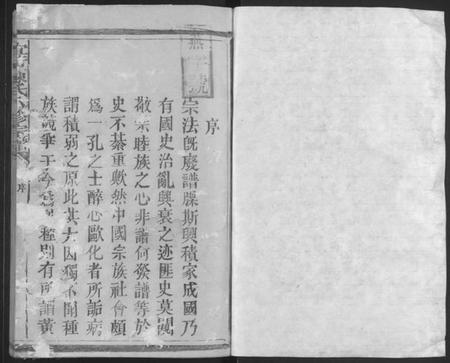 序
宗法既廢譜牒斯興積家成國乃
有國史治亂興衰之迹匪史莫覩
敬宗睦族之心非譜何發譜等於
史不綦重歟然中國宗族社會頗
為一孔之士醉心歐化者所詬病
謂積弱之原此其大因獨不聞種
族競爭于今
種別有所謂黃
序